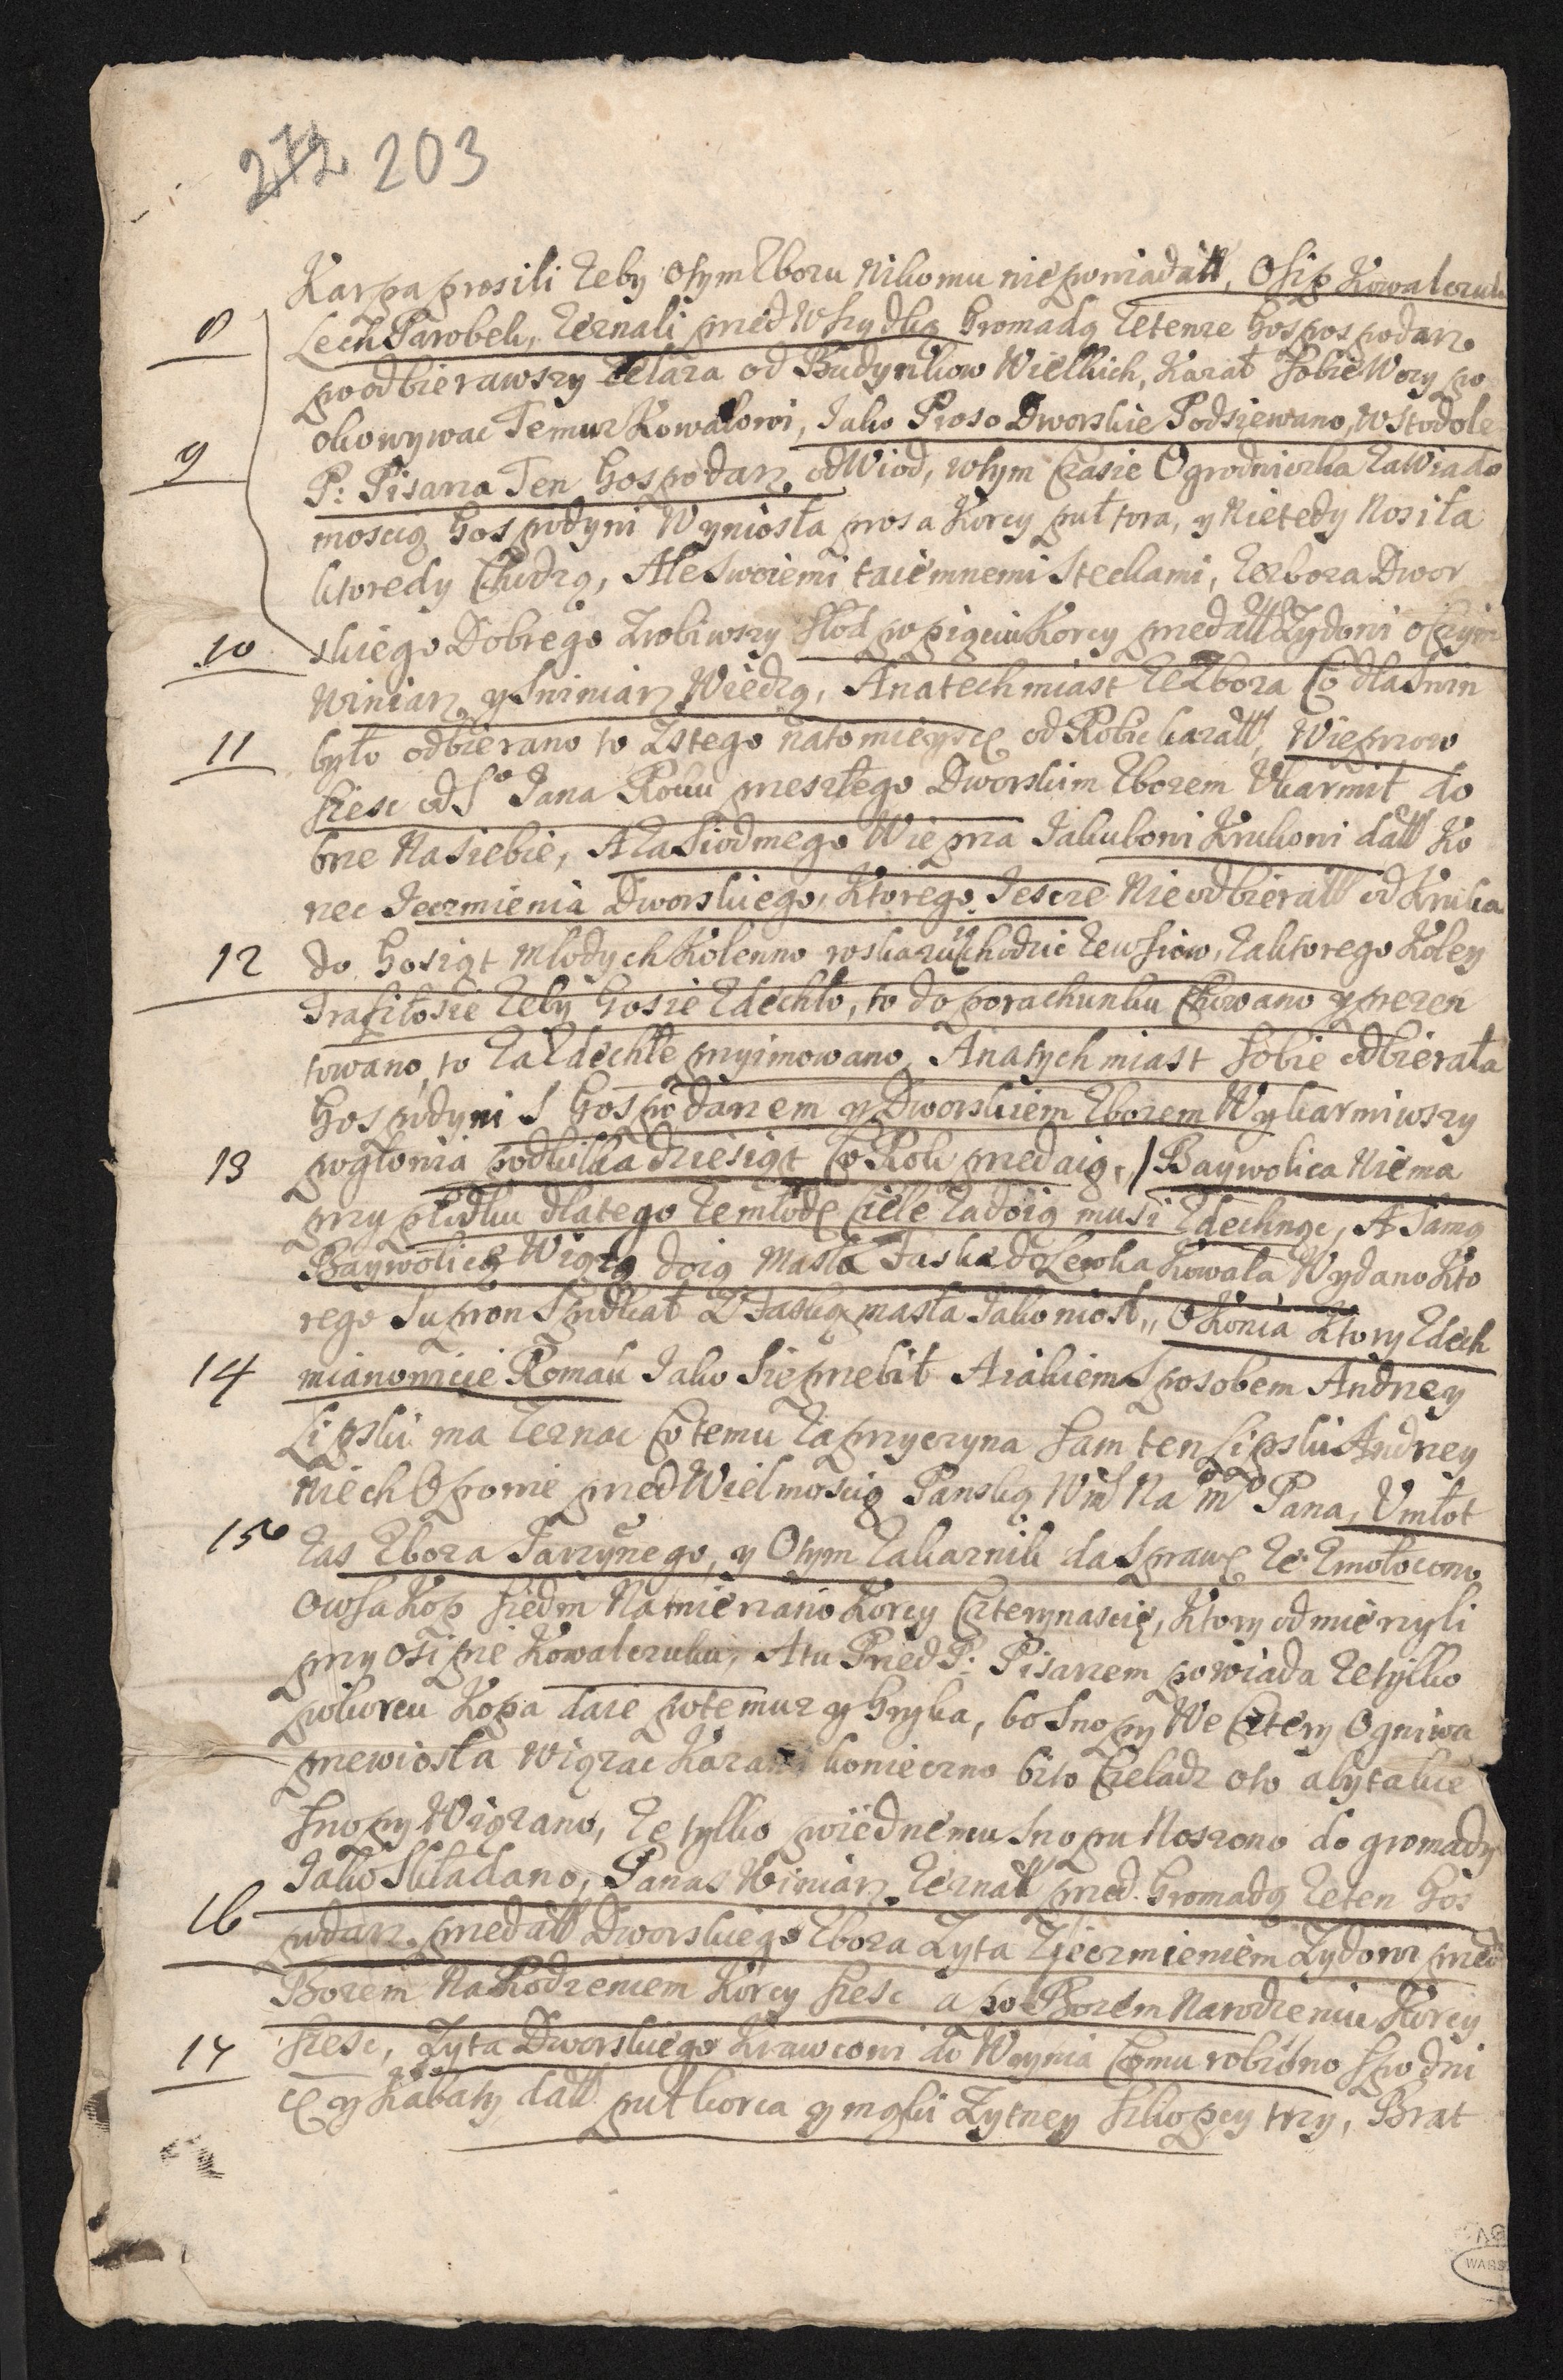 272 203
Karpa prosili Zeby otym Zborzu nikomu niepowiadall, Osip Kowalczuk
8 Lech Parobek, Zeznali przed Wszydką Gromadą Zetenze Gospospodarz
poodbierawszy Zelaza od Budynkow Wielkich, Kazał sobie Wozy po
okowywac Temuz Kowalowi, Jako Proso Dworskie Podsiewano, w Stodole
9 P: Pisarza Ten Gospodarz odwiod, wtym Czasie Ogrodniczka Zawiado
moscią Gospodyni Wyniosła prosa Korcy pułtora, y Nietedy Nosiła
ktoredy Chodzą, Ale Swoiemi taiemnemi Steckami, Zezboza Dwor
10 skiego Dobrego Zrobiwszy Słod po pięciu Korcy przedall Zydowi o czym
Winiarz y Swiniarz Wiedzą, Anatechmiast ZeZboza Co dla Swin
11 było odbierano to Zstego natomieysce od Robu kazall, Wieprzow
szesc od So Jana Roku przeszłego Dworskim Zbozem Ukarmił do
brze Nasiebie, AZa Siodmego Wieprza Jakubowi Krukowi dall Ko
rzec Jeczmienia Dworskiego, Ktorego Jescze Nieodbierall od Kruka
12 do Gosiąt Mlodych Kolenno roskazuią Chodzic Zewsiow, Zaktorego Koley
Trafiłosie Zeby Gosie Zdechło, to do porachunku Chowano y prezen
towano, to Za Zdechłe przyimowano, Anatychmiast sobie odbierała
Gospodyni S Gospodarzem y Dworskiem Zbozem Wykarmiwszy
13 pogłonia podkilka dziesiąt Co Rok przedaią, / Baywolica Niema
przypłodku dlatego Zemłode Ciele Zadoią musi Zdechnąc, A Samą
Baywolicę Wiązą doią Masła Faska do Lewka Kowala Wydano Kto
rego Supron Spotkał Z Faską masła Jako niosł, O Konia Ktory Zdech
14 mianowicie Romak Jako Sieprzebił Aiakiem Sposobem Andrzey
Lipski ma Zeznac Co temu Za przyczyna sam ten Lipski Andrzey
Niech Opowie przed Wielmoscią Panską WM Na Mo Pana, Umłot
15 Zas Zboza Jarzynego, y Otym Zakaznik da Sprawę Ze Zmołocono
Owsa Kop Siedm Namierzano Korcy Czterynascie, Ktory odmierzyli
przy Osipie Kowalczuku, Atu Przed P: Pisarzem powiada Zetylko
pokorcu Kopa daie potemuz y Gryka, bo Snopy We Cztery Ogniwa
przewiosła Wiązac Kazano konieczno bito Czeladz oto abytakie
Snopy Wiązano, Ze tylko poiednemu Snopu Noszono do gromady
Jako Składano, Panas Winiarz Zeznall przed Gromadą Zeten Gos
16 podarz przedall Dworskiego Zboza Zyta ZJeczmieniem Zydowi przed
Bozem Narodzeniem Korcy szesc a po Bozem Narodzeniu Korcy
17 szesc, Zyta Dworskiego Krawcowi do Wrynia Comu robiono Spodni
ce y Kabaty dall puł korca y mąki Zytney szkopcy trzy, Brat